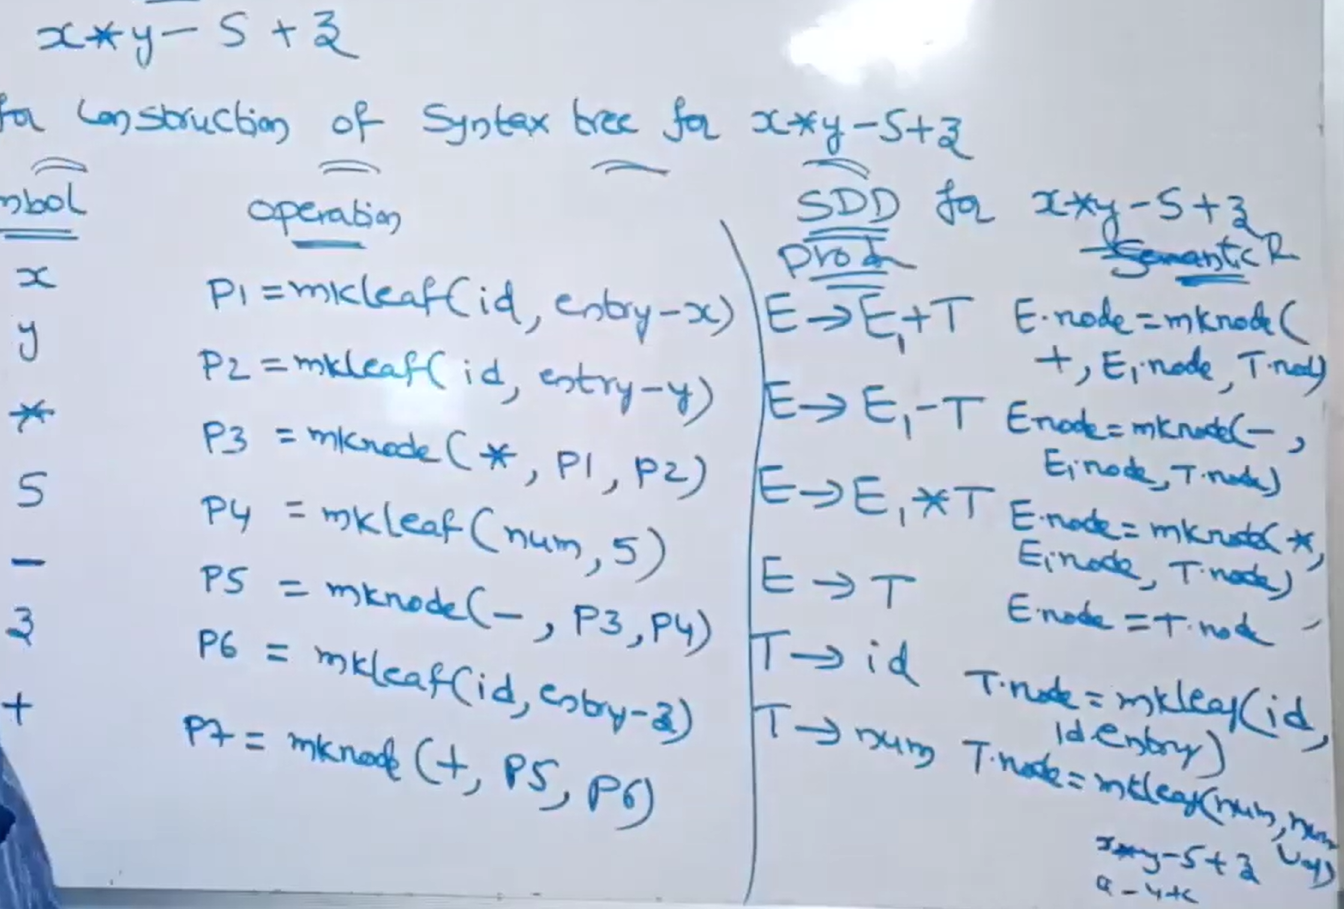 x*y-5+z
for Construction of Syntax tree for x*y-5+z
mbol operation
x P1=mkleaf(id, entry-x)
y P2=mkleaf(id, entry-y)
* P3 = mknode(*, P1, P2)
5 P4 = mkleaf(num, 5)
- P5 = mknode(-, P3, P4)
z P6 = mkleaf(id, entry-z)
+ P7= mknode (+, P5, P6)
SDD for x*y-5+z
Prodn Semantic R
E→E₁+T E.node=mknode(
+, E₁.node, T.node)
E→E₁-T E.node=mknode(-,
E₁.node, T.node)
E→E₁*T E.node=mknode(*,
E₁.node, T.node)
E→T E.node=T.node
T→id T.node=mkleaf(id,
id entry)
T→num T.node=mkleaf(num, num
val)
x*y-5+z
a-4+c